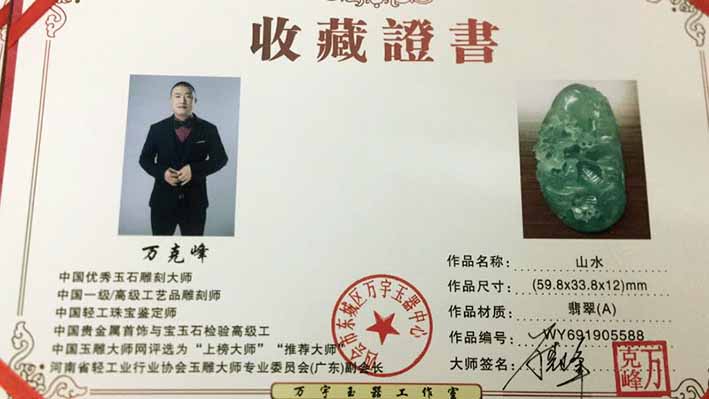 收藏證書
万克峰
中国优秀玉石雕刻大师
中国一级/高级工艺品雕刻师
中国轻工珠宝鉴定师
中国贵金属首饰与宝玉石检验高级工
中国玉雕大师网评选为“上榜大师”“推荐大师”
河南省轻工业行业协会玉雕大师专业委员会(广东)副会长
作品名称: 山水
作品尺寸: (59.8x33.8x12)mm
作品材质: 翡翠(A)
作品编号: WY691905588
大师签名:
万克峰
四会市东城区万宇玉器中心
万宇玉器工作室